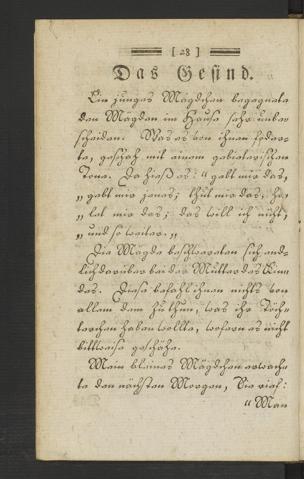 [ 28 ]
Das Gesind.
Ein junges Mägdchen begegnete
den Mägden im Hause sehr unbe-
scheiden. Was es von ihnen foder-
te, geschah mit einem gebieterischen
Tone. Da hieß es: "gebt mir das,
„ gebt mir jenes; thut mir das, ho-
„ let mir das; das will ich nicht,
„ und so weiter. „
Die Mägde beschwereten sich end-
lich darüber bei der Mutter des Kin-
des. Diese befahl ihnen nichts von
allem dem zu thun, was ihr Töch-
terchen haben wollte, wofern es nicht
bittweise geschähe.
Mein kleines Mägdchen erwach-
te den nächsten Morgen, Sie rief:
" Man